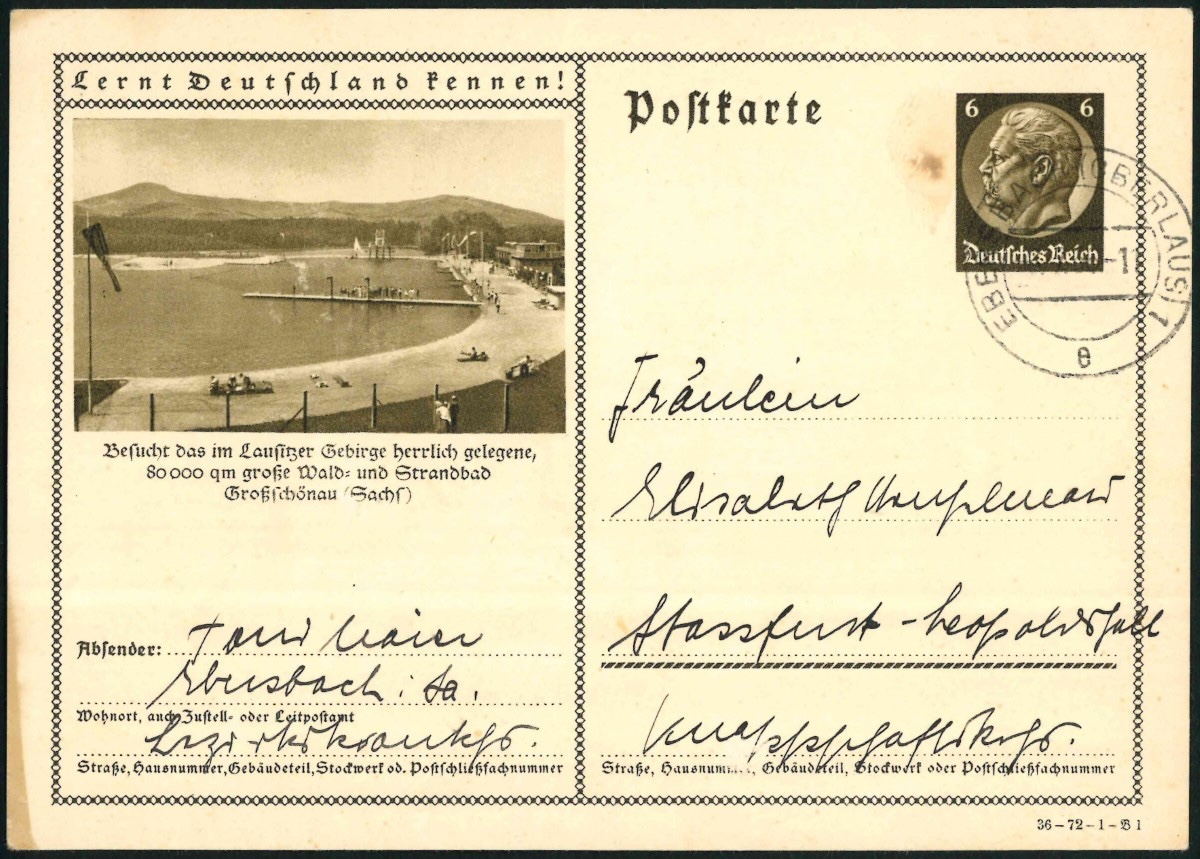 Lernt Deutschland kennen!
Besucht das im Lausitzer Gebirge herrlich gelegene,
80000 qm große Wald- und Strandbad
Großschönau (Sachs)
Absender:
Maier
Ebersbach i. Sa.
Wohnort, auch Zustell- oder Leitpostamt
Bezirkskrankhs.
Straße, Hausnummer, Gebäudeteil, Stockwerk od. Postschließfachnummer
Postkarte
6 6
Deutsches Reich
(OBERLAUS) 1
e
Fräulein
Elisabeth
Stassfurt-Leopoldshall
Knappschaftskrhs.
Straße, Hausnummer, Gebäudeteil, Stockwerk oder Postschließfachnummer
36-72-1-B 1